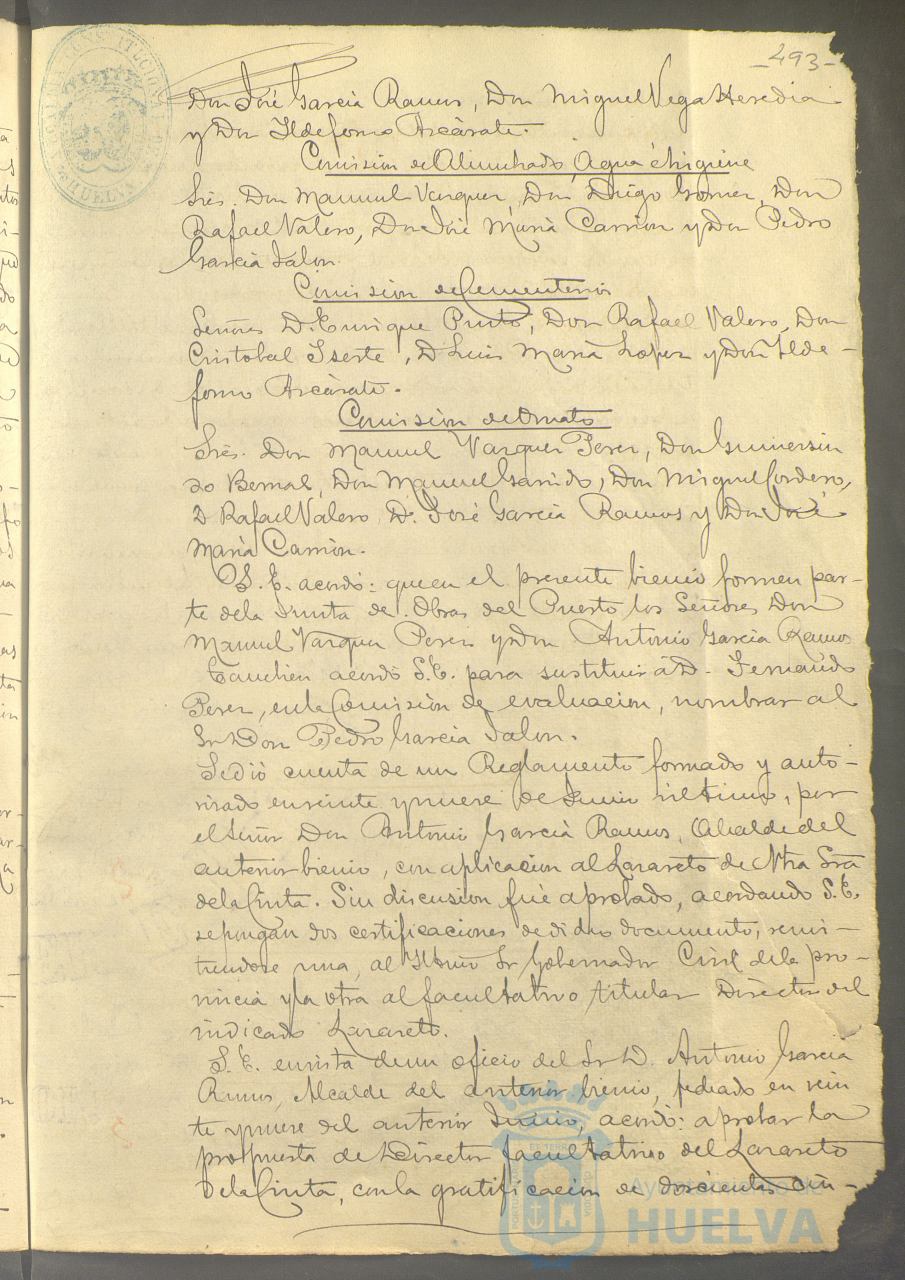 -493-
Don José García Ramos, Don Miguel Vega Heredia
y Don Ildefonso Azcárate.
Comisión de Alumbrado, Agua é higiene
Sres. Don Manuel Vazquez, Don Diego Gomez, Don
Rafael Valero, Don José María Carrion y Don Pedro
García Jalon.
Comisión de Cementerios
Señores D. Enrique Pinto, Don Rafael Valero, Don
Cristobal Iserte, D Luis María Lopez y Don Ilde-
fonso Azcárate.
Comisión de Ornato
Sres. Don Manuel Vazquez Perez, Don Gumersin
do Bernal, Don Manuel Garrido, Don Miguel Cordero,
D Rafael Valero D. José García Ramos y Don José
María Carrion.
S. E. acordó: que en el presente bienio formen par-
te de la Junta de Obras del Puerto los Señores Don
Manuel Vazquez Perez y Don Antonio García Ramos
Tambien acordó S. E. para sustituir á D. Fernando
Perez, en la Comisión de evaluacion, nombrar al
Sr Don Pedro García Jalon.
Se dió cuenta de un Reglamento formado y auto-
rizado en veinte y nueve de Junio último, por
el Señor Don Antonio García Ramos, Alcalde del
anterior bienio, con aplicacion al Lazareto de Ntra Sra
de la Cinta. Sin discusion fué aprobado, acordando S. E.
se pongan dos certificaciones de dicho documento, remi-
tiendose una, al Iltmo Sr Gobernador Civil de la pro-
vincia y la otra al facultativo titular Director del
indicado Lazareto.
S. E. en vista de un oficio del Sr D. Antonio García
Ramos, Alcalde del anterior bienio, fechado en vein
te y nueve del anterior Junio, acordó: aprobar la
propuesta de Director facultativo del Lazareto
de la Cinta, con la gratificacion de doscientas cin-
Ayuntamiento de
HUELVA